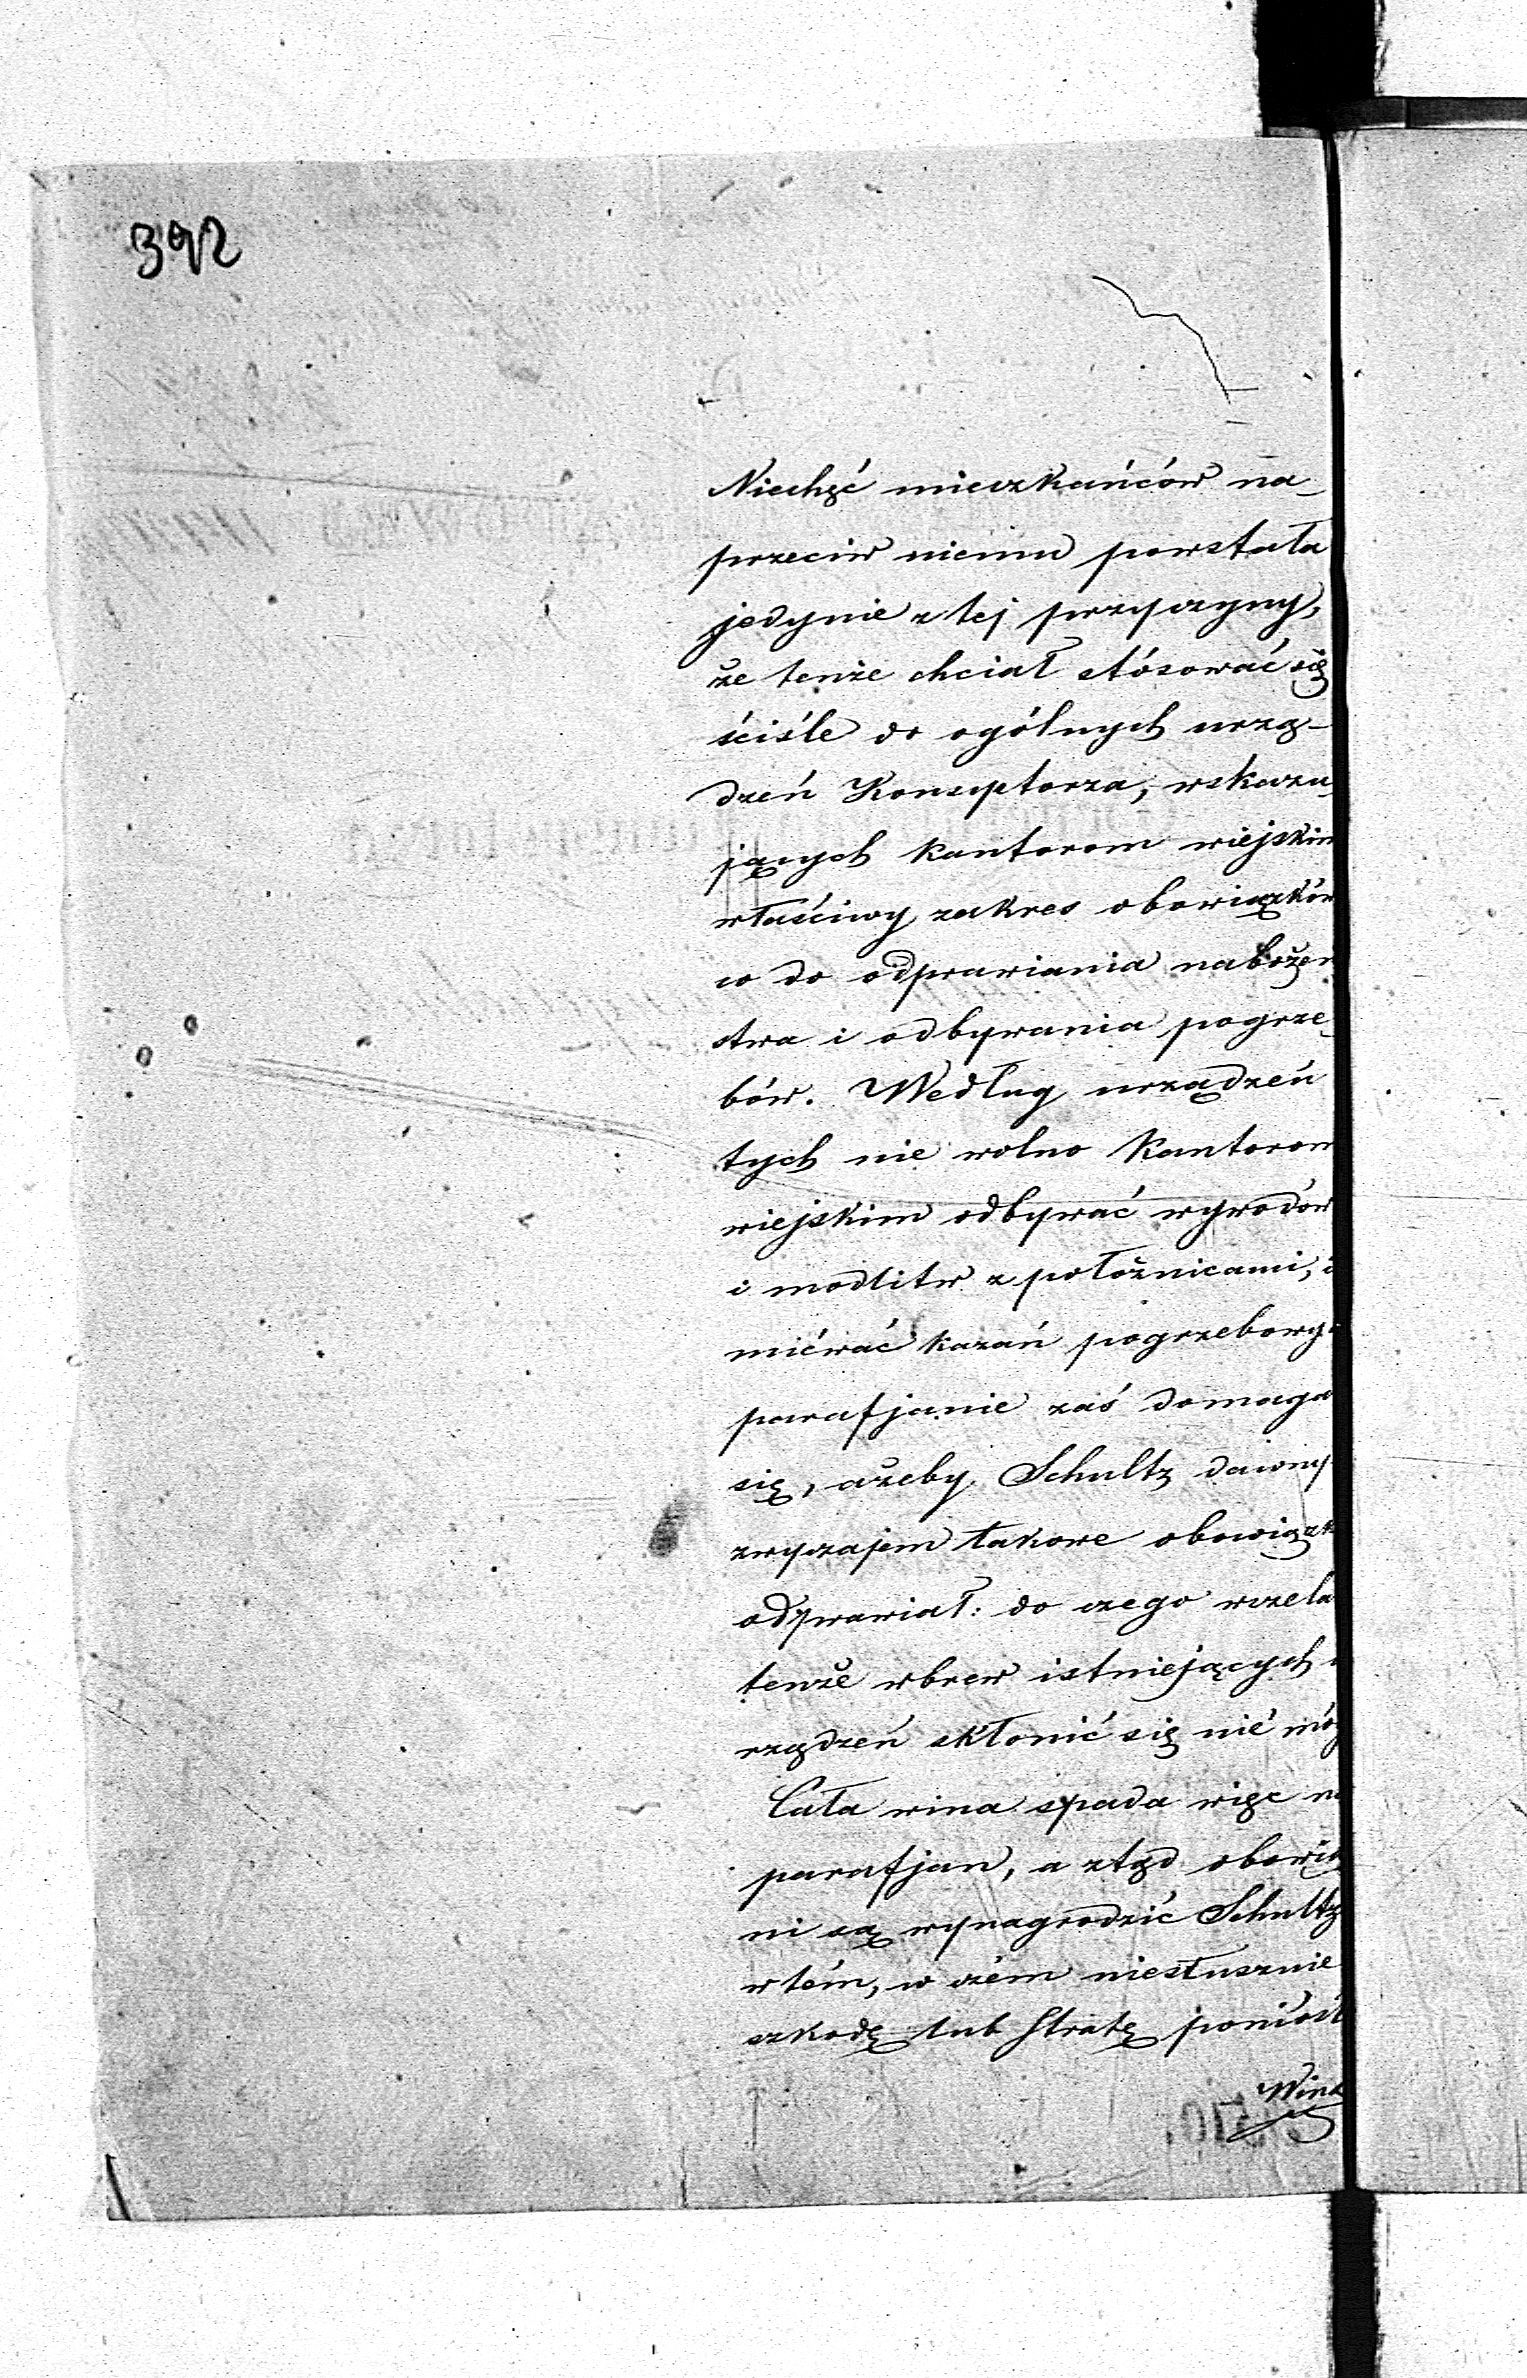 392
Niechęć mieszkańców na_
przeciw niemu powstała
jedynie z tej przyczyny,
że tenże chciał stósować się
ściśle do ogólnych urzą-
dzeń Konsystorza, wskazu_
jących kantorom wiejskim
właściwy zakres obowiązków
co do odprawiania nabożeń
stwa i odbywania pogrze_
bów. Według urządzeń
tych nie wolno Kantorom
wiejskim odbywać wywodów
i modlitw z położnicami, i
miéwać kazań pogrzebowyc
parafjanie zaś domaga
się, ażeby Schultz dawny
zwyczajem takowe obowiązk
odprawiał: do czego wszela
tenże wbrew istniejących u
rządzeń skłonić się nie móg
Cała wina spada więc na
parafjan, a ztąd obowią
ni są wynagrodzić Schultz
w tém, w czém niesłusznie
szkodę lub stratę poniósł
Wink